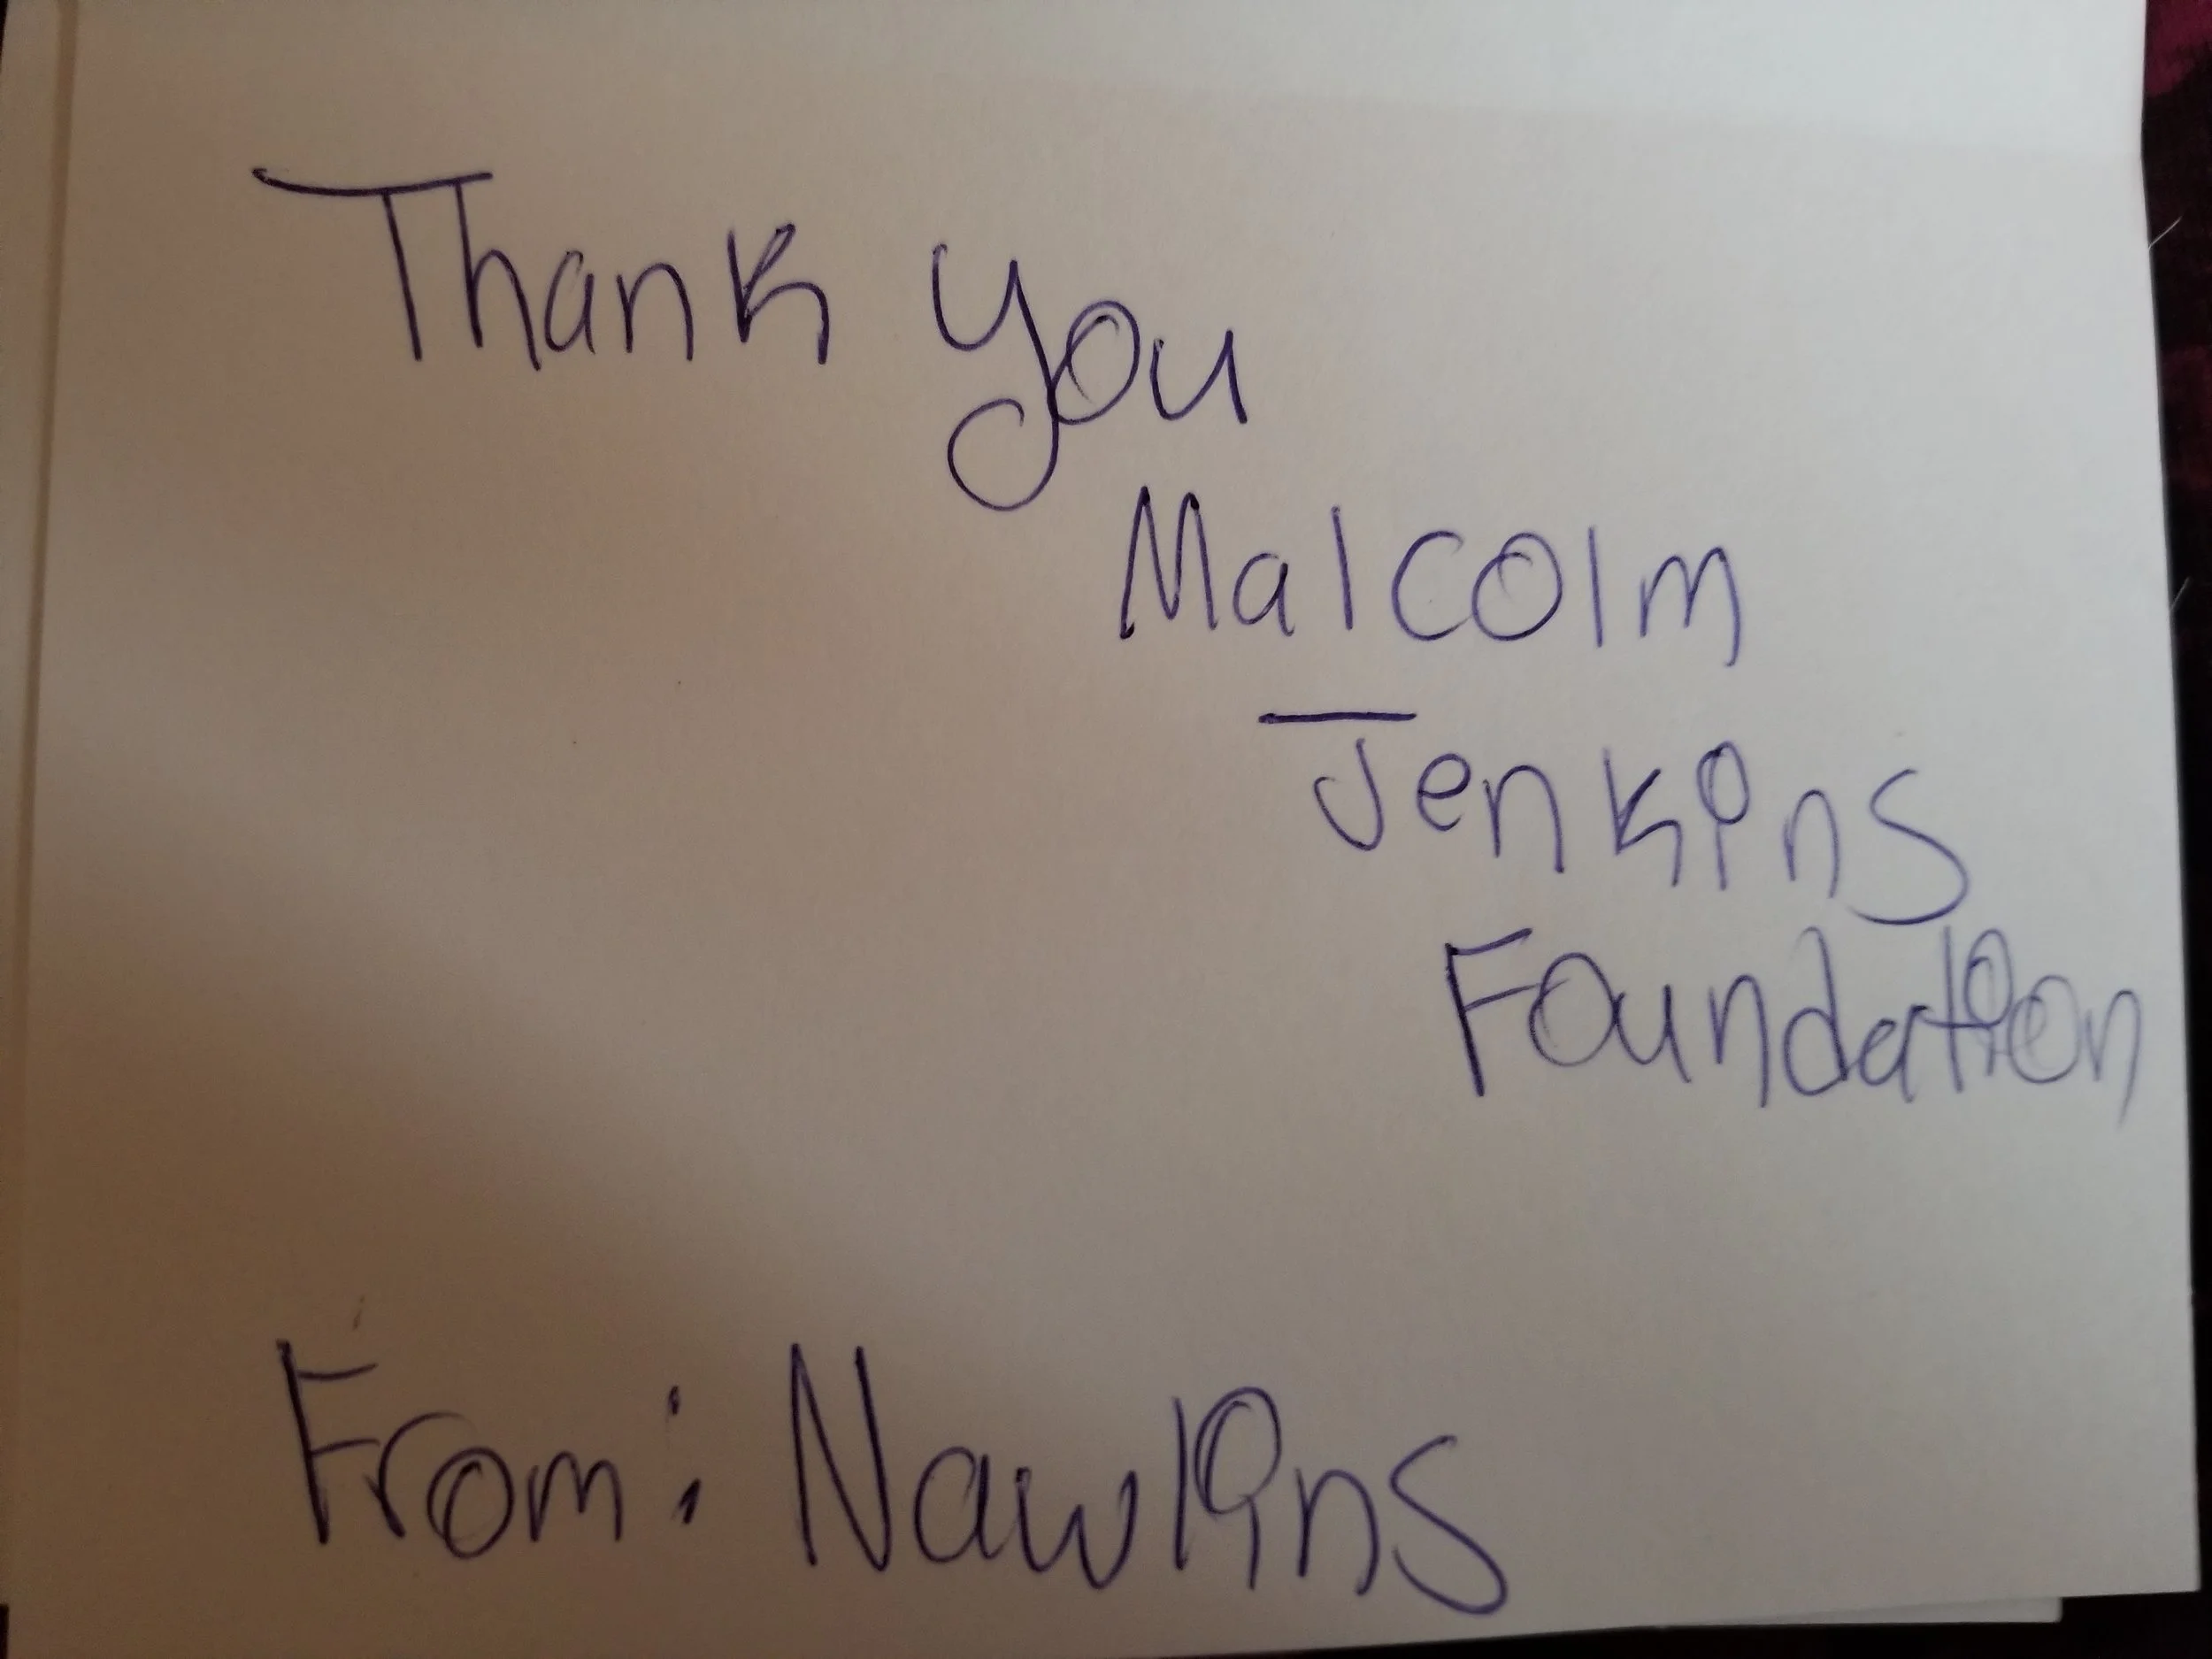 Thank you
Malcolm
Jenkins
Foundation
From: Nawlins